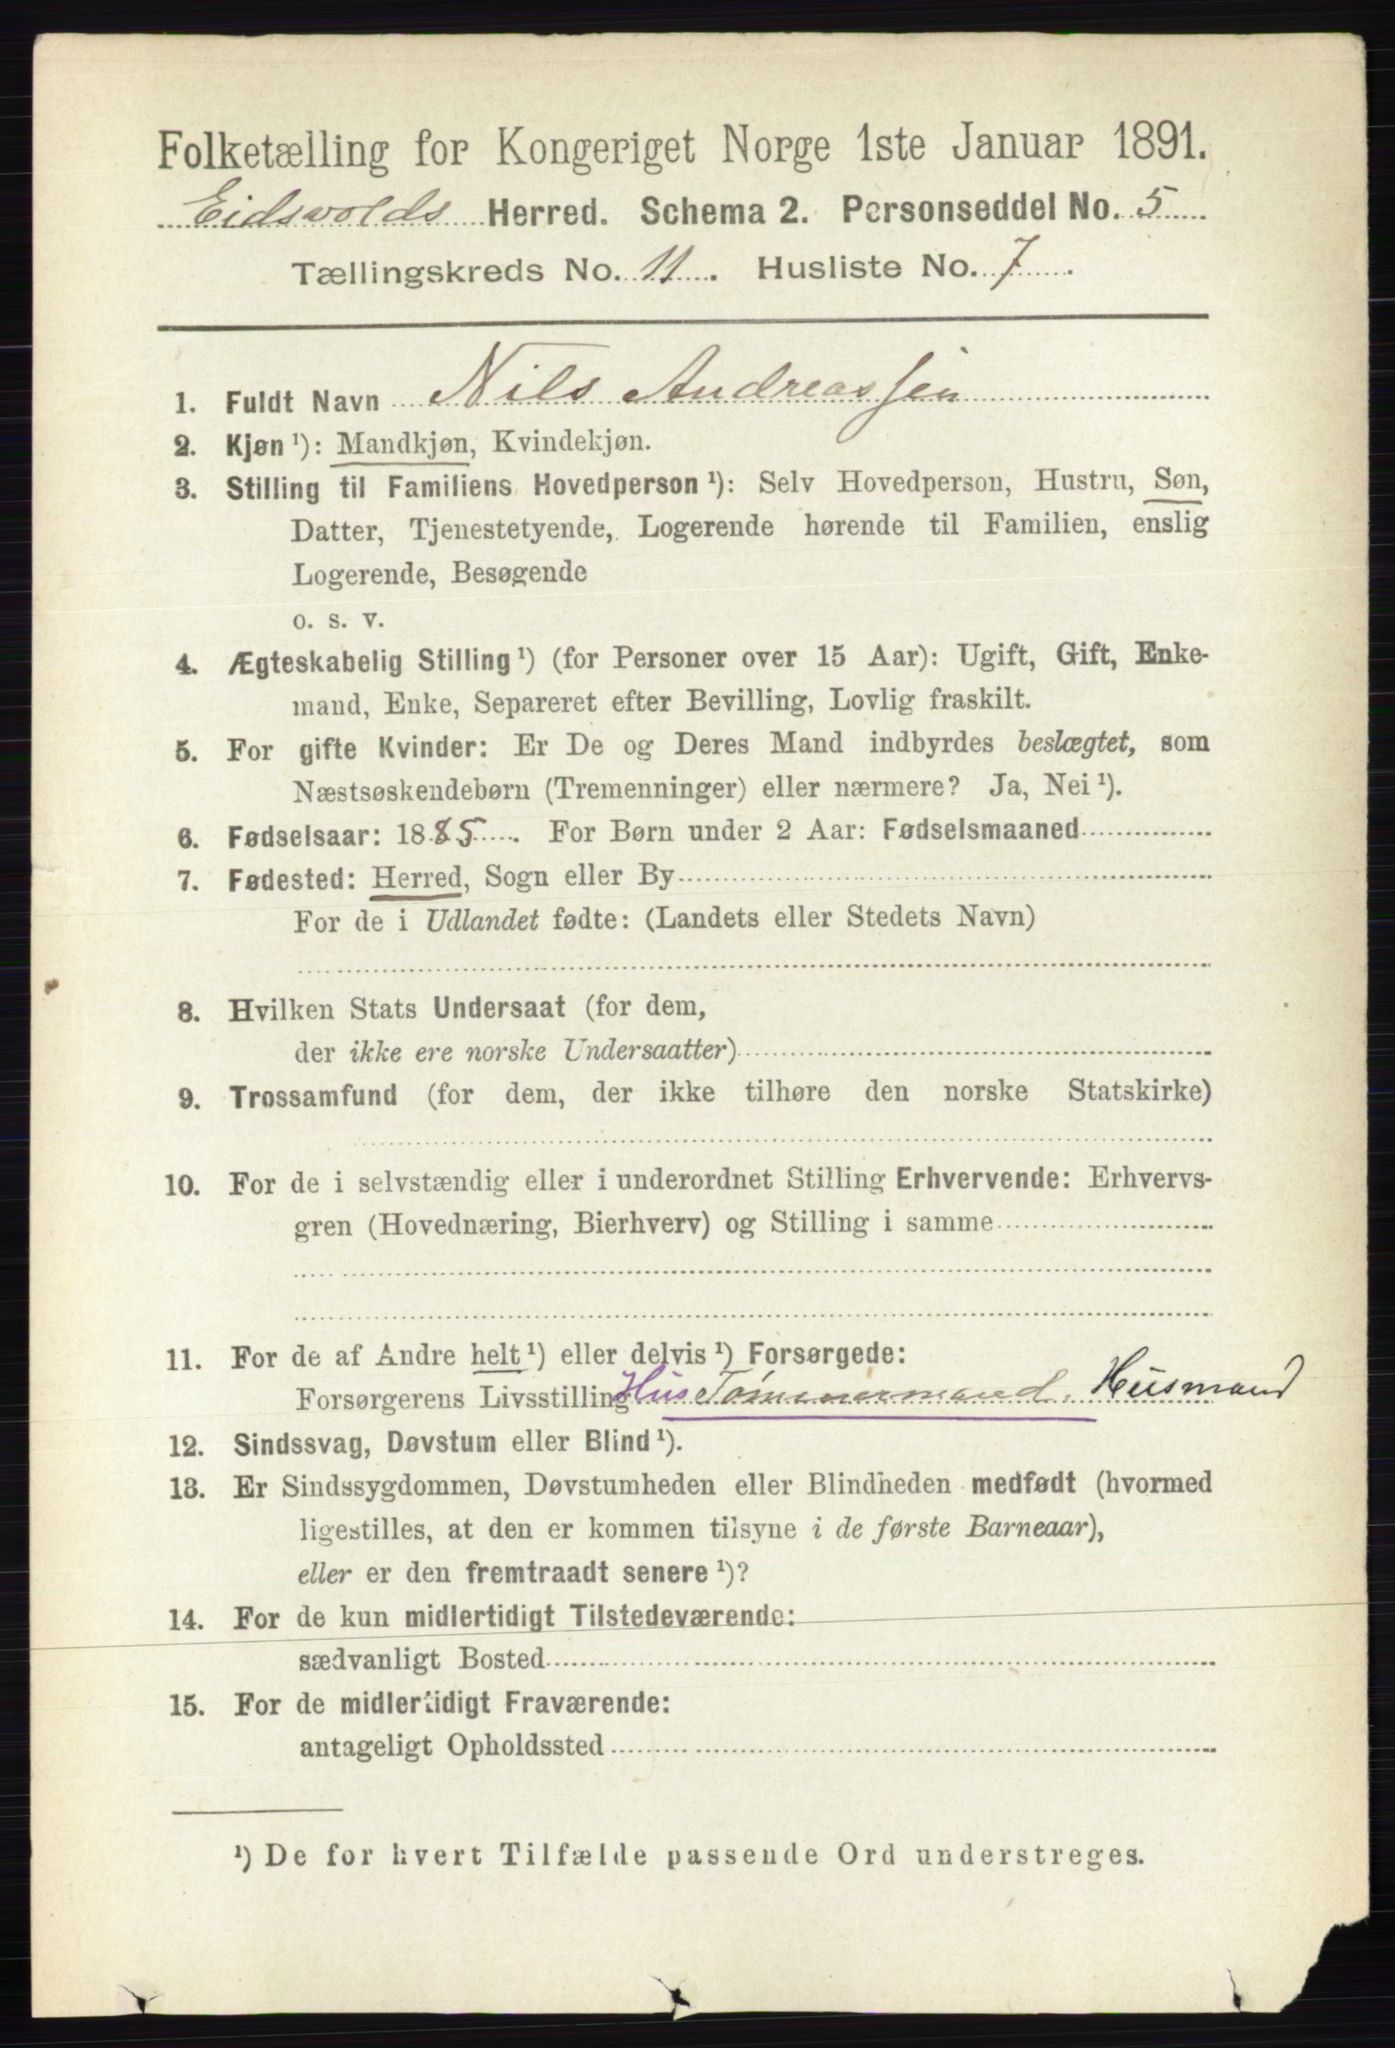 Folketælling for Kongeriget Norge 1ste Januar 1891.
Eidsvolds Herred. Schema 2. Personseddel No. 5
Tællingskreds No. 11. Husliste No. 7.
1. Fuldt Navn Nils Andreassen
2. Kjøn ¹): Mandkjøn, Kvindekjøn.
3. Stilling til Familiens Hovedperson ¹): Selv Hovedperson, Hustru, Søn,
Datter, Tjenestetyende, Logerende hørende til Familien, enslig
Logerende, Besøgende
o. s. v.
4. Ægteskabelig Stilling ¹) (for Personer over 15 Aar): Ugift, Gift, Enke-
mand, Enke, Separeret efter Bevilling, Lovlig fraskilt.
5. For gifte Kvinder: Er De og Deres Mand indbyrdes beslægtet, som
Næstsøskendebørn (Tremenninger) eller nærmere? Ja, Nei ¹).
6. Fødselsaar: 1885. For Børn under 2 Aar: Fødselsmaaned
7. Fødested: Herred, Sogn eller By
For de i Udlandet fødte: (Landets eller Stedets Navn)
8. Hvilken Stats Undersaat (for dem,
der ikke ere norske Undersaatter)
9. Trossamfund (for dem, der ikke tilhøre den norske Statskirke)
10. For de i selvstændig eller i underordnet Stilling Erhvervende: Erhvervs-
gren (Hovednæring, Bierhverv) og Stilling i samme
11. For de af Andre helt ¹) eller delvis ¹) Forsørgede:
Forsørgerens Livsstilling Hus Tömmermand. Husmand
12. Sindssvag, Døvstum eller Blind ¹).
13. Er Sindssygdommen, Døvstumheden eller Blindheden medfødt (hvormed
ligestilles, at den er kommen tilsyne i de første Barneaar),
eller er den fremtraadt senere ¹)?
14. For de kun midlertidigt Tilstedeværende:
sædvanligt Bosted
15. For de midlertidigt Fraværende:
antageligt Opholdssted
¹) De for hvert Tilfælde passende Ord understreges.